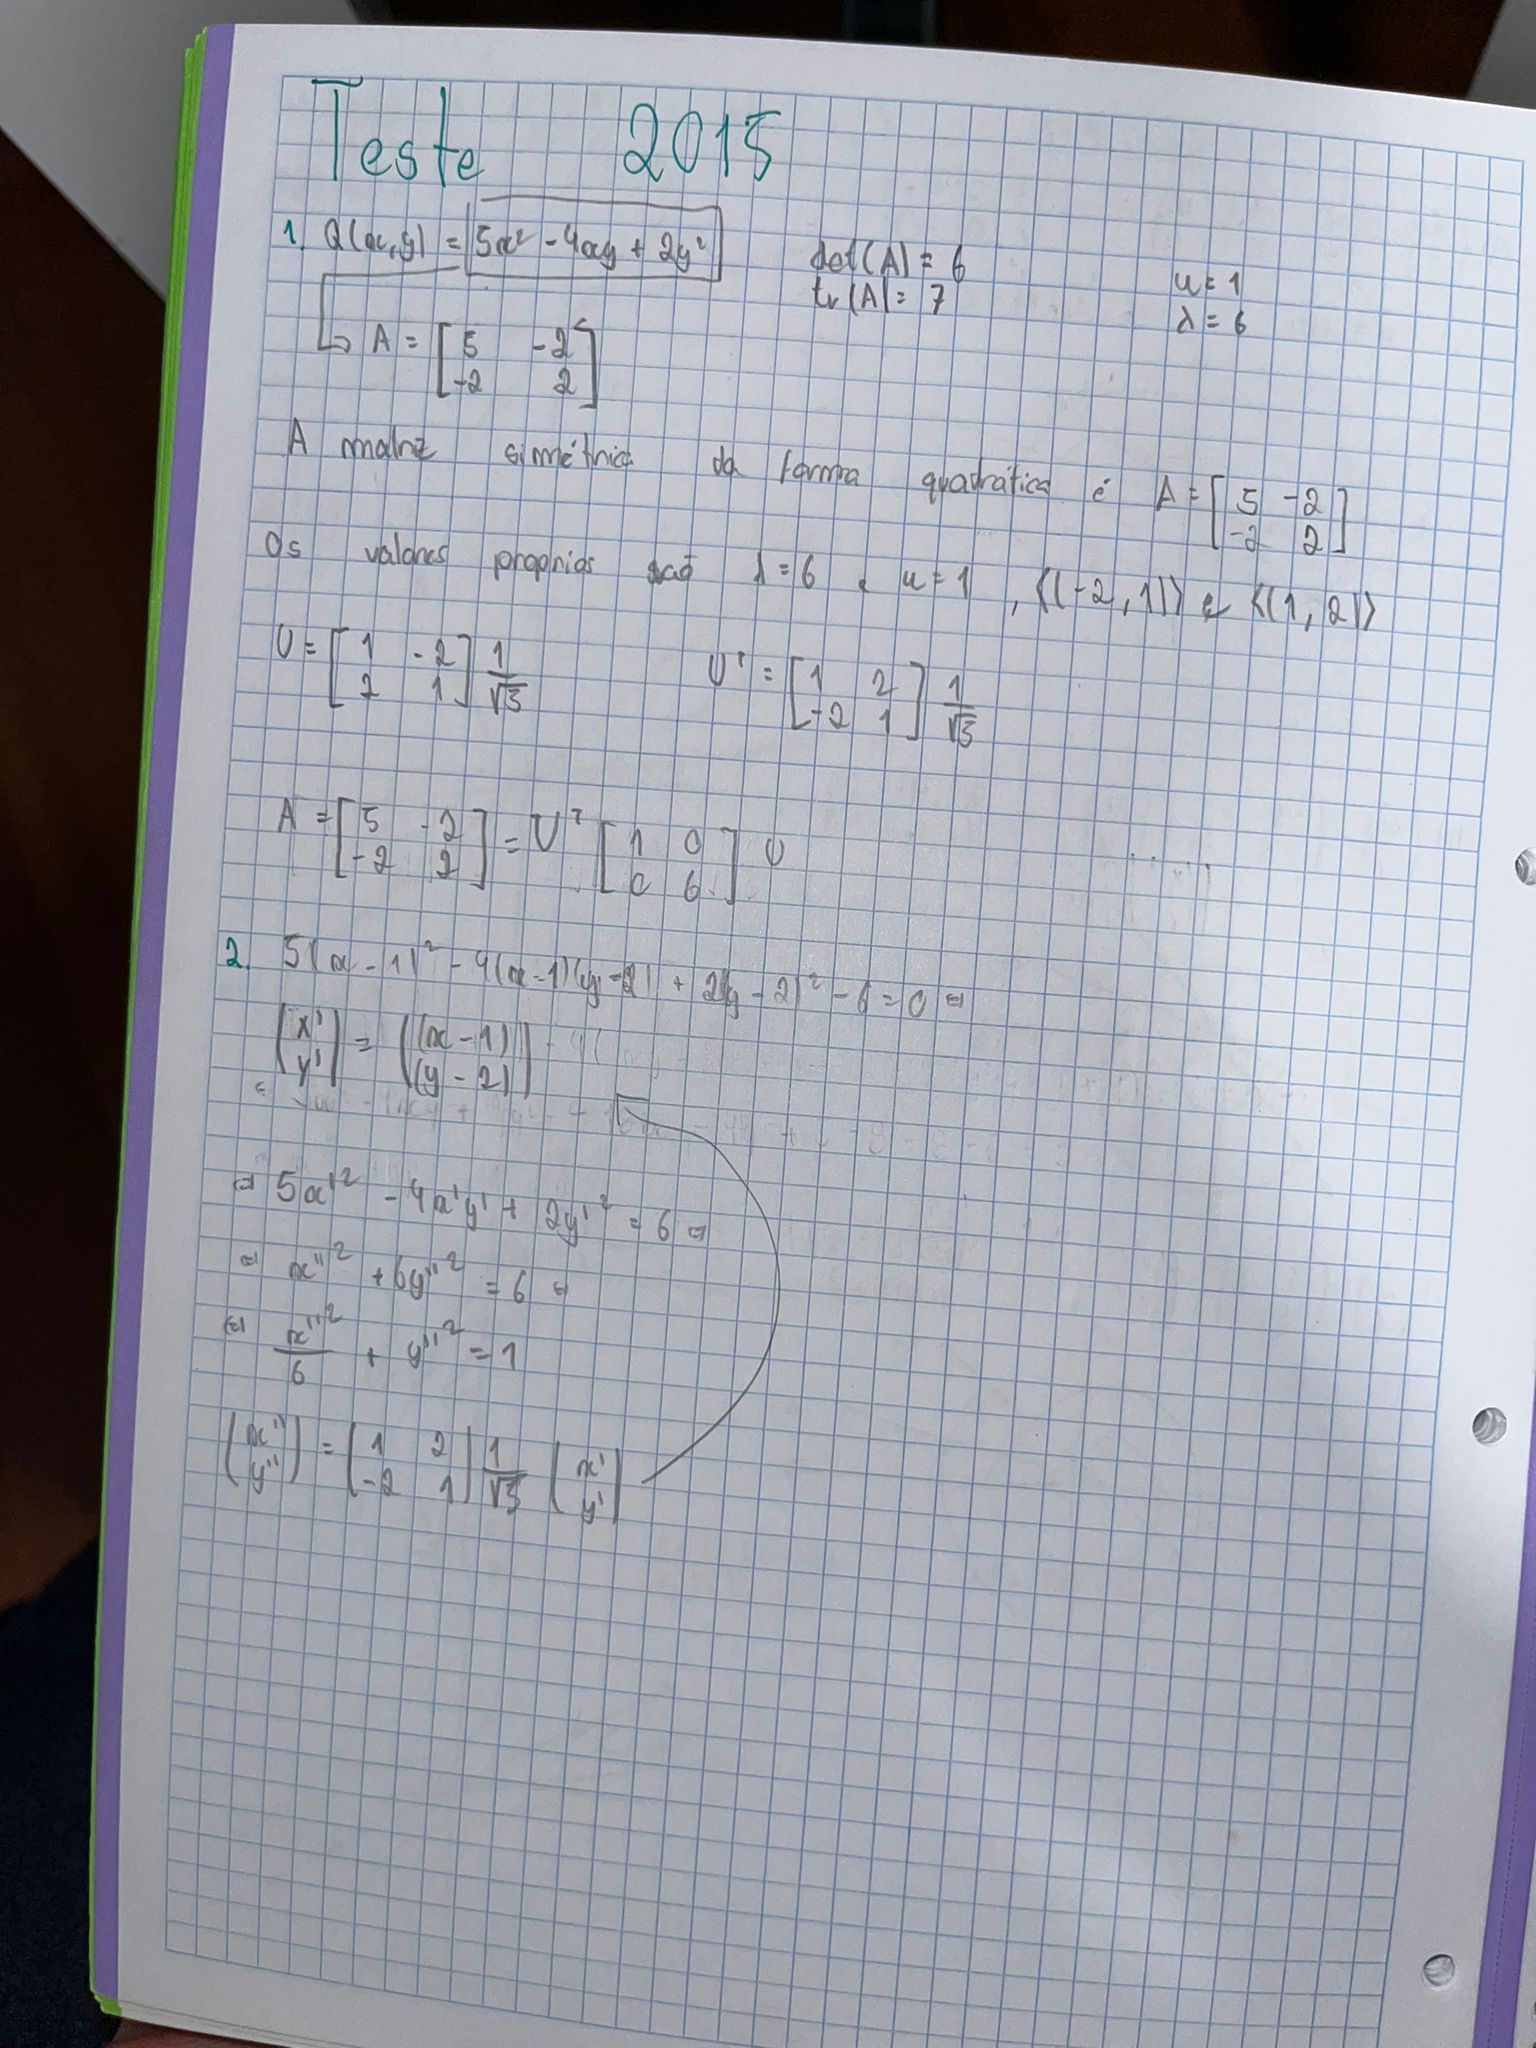 Teste 2015
1. Q(x,y) = 5x² - 4xy + 2y²
det(A) = 6
tr(A) = 7
u = 1
λ = 6
↳ A = [5 -2
-2 2]
A matriz simétrica da forma quadrática é A = [5 -2
-2 2]
Os valores proprios são λ = 6 e u = 1, <(-2,1)> e <(1,2)>
U = [1 -2
2 1] 1/√5
Uᵀ = [1 2
-2 1] 1/√5
A = [5 -2
-2 2] = Uᵀ [1 0
0 6] U
2. 5(x-1)² - 4(x-1)(y-2) + 2(y-2)² - 6 = 0 ⇔
(x'
y') = ((x-1)
(y-2))
⇔ 5x'² - 4x'y' + 2y'² = 6 ⇔
⇔ x''² + 6y''² = 6 ⇔
⇔ x''²/6 + y''² = 1
(x''
y'') = (1 2
-2 1) 1/√5 (x'
y')